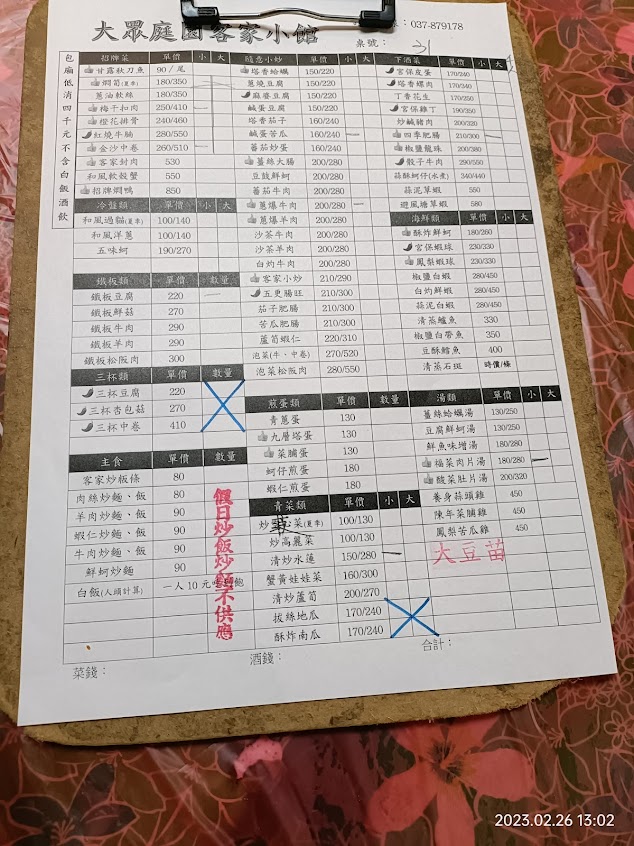 大眾庭園客家小館
：037-879178
桌號：31
包廂低消四千元不含白飯酒飲
招牌菜 單價 小 大
甘露秋刀魚 90／尾
燜筍(夏季) 180/350
蔥油軟絲 180/350
梅干扣肉 250/410
橙花排骨 240/460
紅燒牛腩 280/550
金沙中卷 260/510
客家封肉 530
和風軟殼蟹 550
招牌燜鴨 850
冷盤類 單價 小 大
和風過貓(夏季) 100/140
和風洋蔥 100/140
五味蚵 190/270
鐵板類 單價 數量
鐵板豆腐 220
鐵板鮮菇 270
鐵板牛肉 290
鐵板羊肉 290
鐵板松阪肉 300
三杯類 單價 數量
三杯豆腐 220
三杯杏包菇 270
三杯中卷 410
主食 單價 數量
客家炒粄條 80
肉絲炒麵、飯 80
羊肉炒麵、飯 90
蝦仁炒麵、飯 90
牛肉炒麵、飯 90
鮮蚵炒麵 90
白飯(人頭計算) 一人10元吃到飽
假日炒飯炒麵不供應
隨意小炒 單價 小 大
塔香蛤蠣 150/220
蔥燒豆腐 150/220
麻婆豆腐 150/220
鹹蛋豆腐 150/220
塔香茄子 160/240
鹹蛋苦瓜 160/240
蕃茄炒蛋 160/240
薑絲大腸 200/280
豆豉鮮蚵 200/280
蕃茄牛肉 200/280
蔥爆牛肉 200/280
蔥爆羊肉 200/280
沙茶牛肉 200/280
沙茶羊肉 200/280
白灼牛肉 200/280
客家小炒 210/290
五更腸旺 210/300
茄子肥腸 210/300
苦瓜肥腸 210/300
蘆筍蝦仁 220/310
泡菜(牛、中卷) 270/520
泡菜松阪肉 280/550
煎蛋類 單價 數量
青蔥蛋 130
九層塔蛋 130
菜脯蛋 130
蚵仔煎蛋 180
蝦仁煎蛋 180
青菜類 單價 小 大
炒 菜(夏季) 100/130
炒高麗菜 100/130
清炒水蓮 150/280
蟹黃娃娃菜 160/300
清炒蘆筍 200/270
拔絲地瓜 170/240
酥炸南瓜 170/240
下酒菜 單價 小 大
宮保皮蛋 170/240
塔香螺肉 170/240
丁香花生 170/250
宮保雞丁 190/350
炒鹹豬肉 200/320
四季肥腸 210/300
椒鹽龍珠 200/380
骰子牛肉 290/550
蒜酥蚵仔(水煮) 340/440
蒜泥草蝦 550
避風塘草蝦 580
海鮮類 單價 小 大
酥炸鮮蚵 180/260
宮保蝦球 230/330
鳳梨蝦球 230/330
椒鹽白蝦 280/450
白灼鮮蝦 280/450
蒜泥白蝦 280/450
清蒸鱸魚 330
椒鹽白帶魚 350
豆酥鱈魚 400
清蒸石斑 時價/條
湯類 單價 小 大
薑絲蛤蠣湯 130/250
豆腐鮮蚵湯 130/250
鮮魚味增湯 180/280
福菜肉片湯 180/280
酸菜肚片湯 200/320
養身蒜頭雞 450
陳年菜脯雞 450
鳳梨苦瓜雞 450
大豆苗
菜錢：
酒錢：
合計：
2023.02.26 13:02